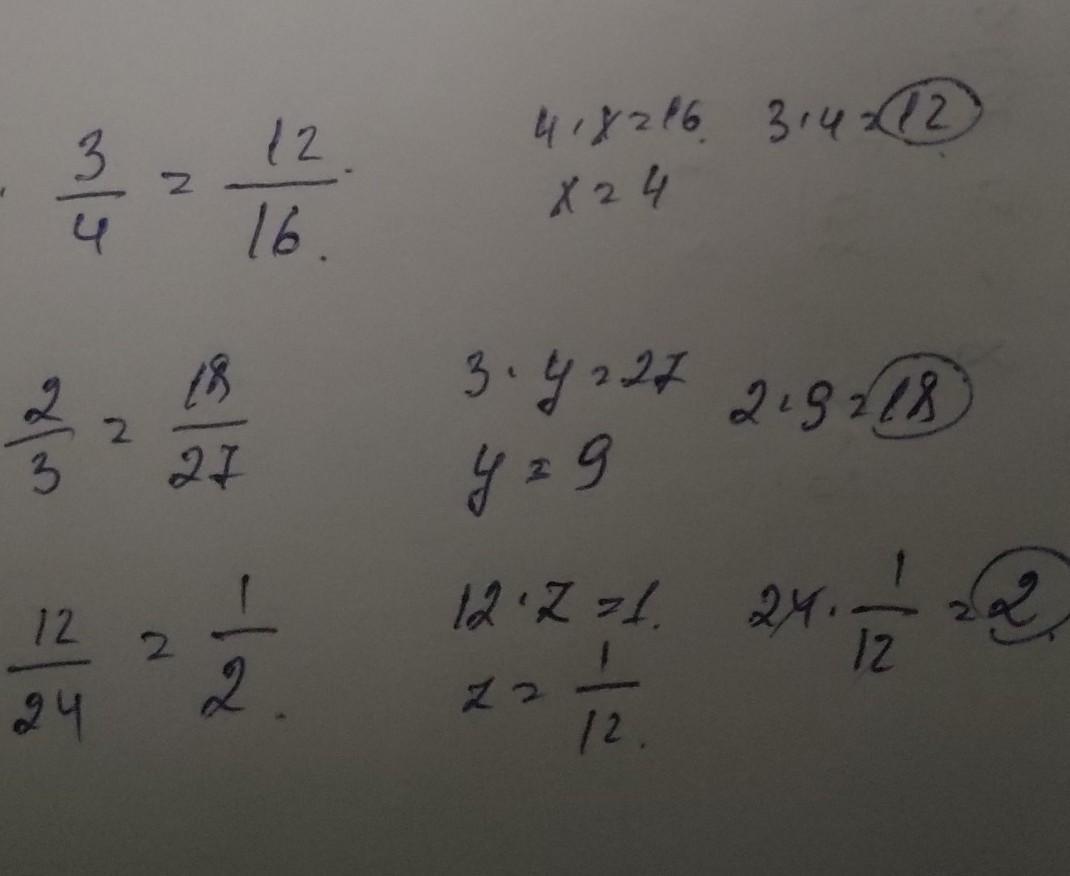 3/4 = 12/16. 4·x=16. 3·4=12
x=4
2/3 = 18/27 3·y=27 2·9=18
y=9
12/24 = 1/2. 12·z=1. 24·1/12=2.
z=1/12.